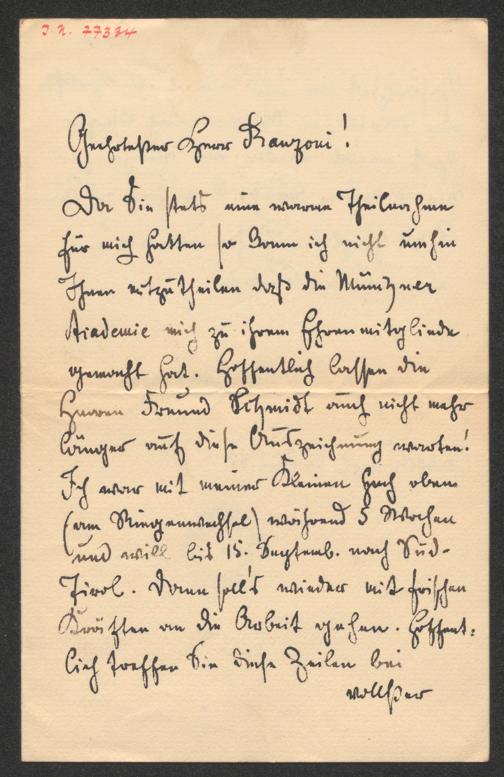 J. N. 77334
Geehrtester Herr Ranzoni!
Da Sie stets eine warme Theilnahme
für mich hatten so kann ich nicht umhin
Ihnen mitzutheilen daß die Münchner
Academie mich zu ihrem Ehrenmitgliede
gemacht hat. Hoffentlich lassen die
Herren Freund Schmidt auch nicht mehr
länger auf diese Auszeichnung warten!
Ich war mit meiner Kleinen hoch oben
(am) während 5 Wochen
und will bis 15. Septemb. nach Süd-
Tirol. Dann soll's wieder mit frischen
Kräften an die Arbeit gehen. Hoffent-
lich treffen Sie diese Zeilen bei
vollster